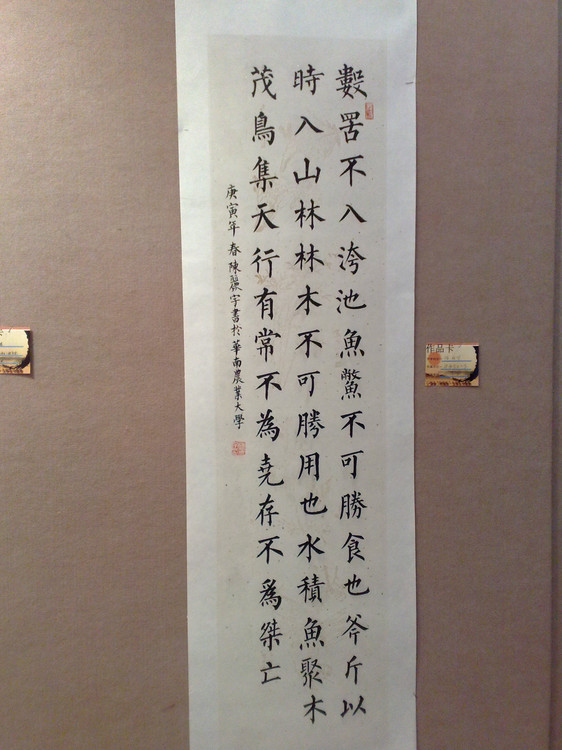 數罟不入洿池魚鱉不可勝食也斧斤以
時入山林林木不可勝用也水積魚聚木
茂鳥集天行有常不為堯存不爲桀亡
庚寅年春陳麗宇書於華南農業大學
作品卡